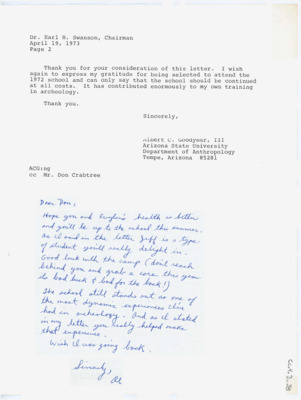 Dr. Earl H. Swanson, Chairman
April 19, 1973
Page 2
Thank you for your consideration of this letter. I wish
again to express my gratitude for being selected to attend the
1972 school and can only say that the school should be continued
at all costs. It has contributed enormously to my own training
in archeology.
Thank you.
Sincerely,
Albert C. Goodyear, III
Arizona State University
Department of Anthropology
Tempe, Arizona 85281
ACG:mg
cc Mr. Don Crabtree
Dear Don,
Hope you and Evelyn's health is better
and you'll be up to the school this summer.
As I said in the letter Jeff is a type
of student you'll really delight in.
Good luck with the camp (don't reach
behind you and grab a core this year
to bad luck & bad for the back!)
The school still stands out as one of
the most dynamic experiences I've
had in archeology. And as I stated
in my letter you really helped make
that experience.
Wish I was going back.
Sincerely,
Al